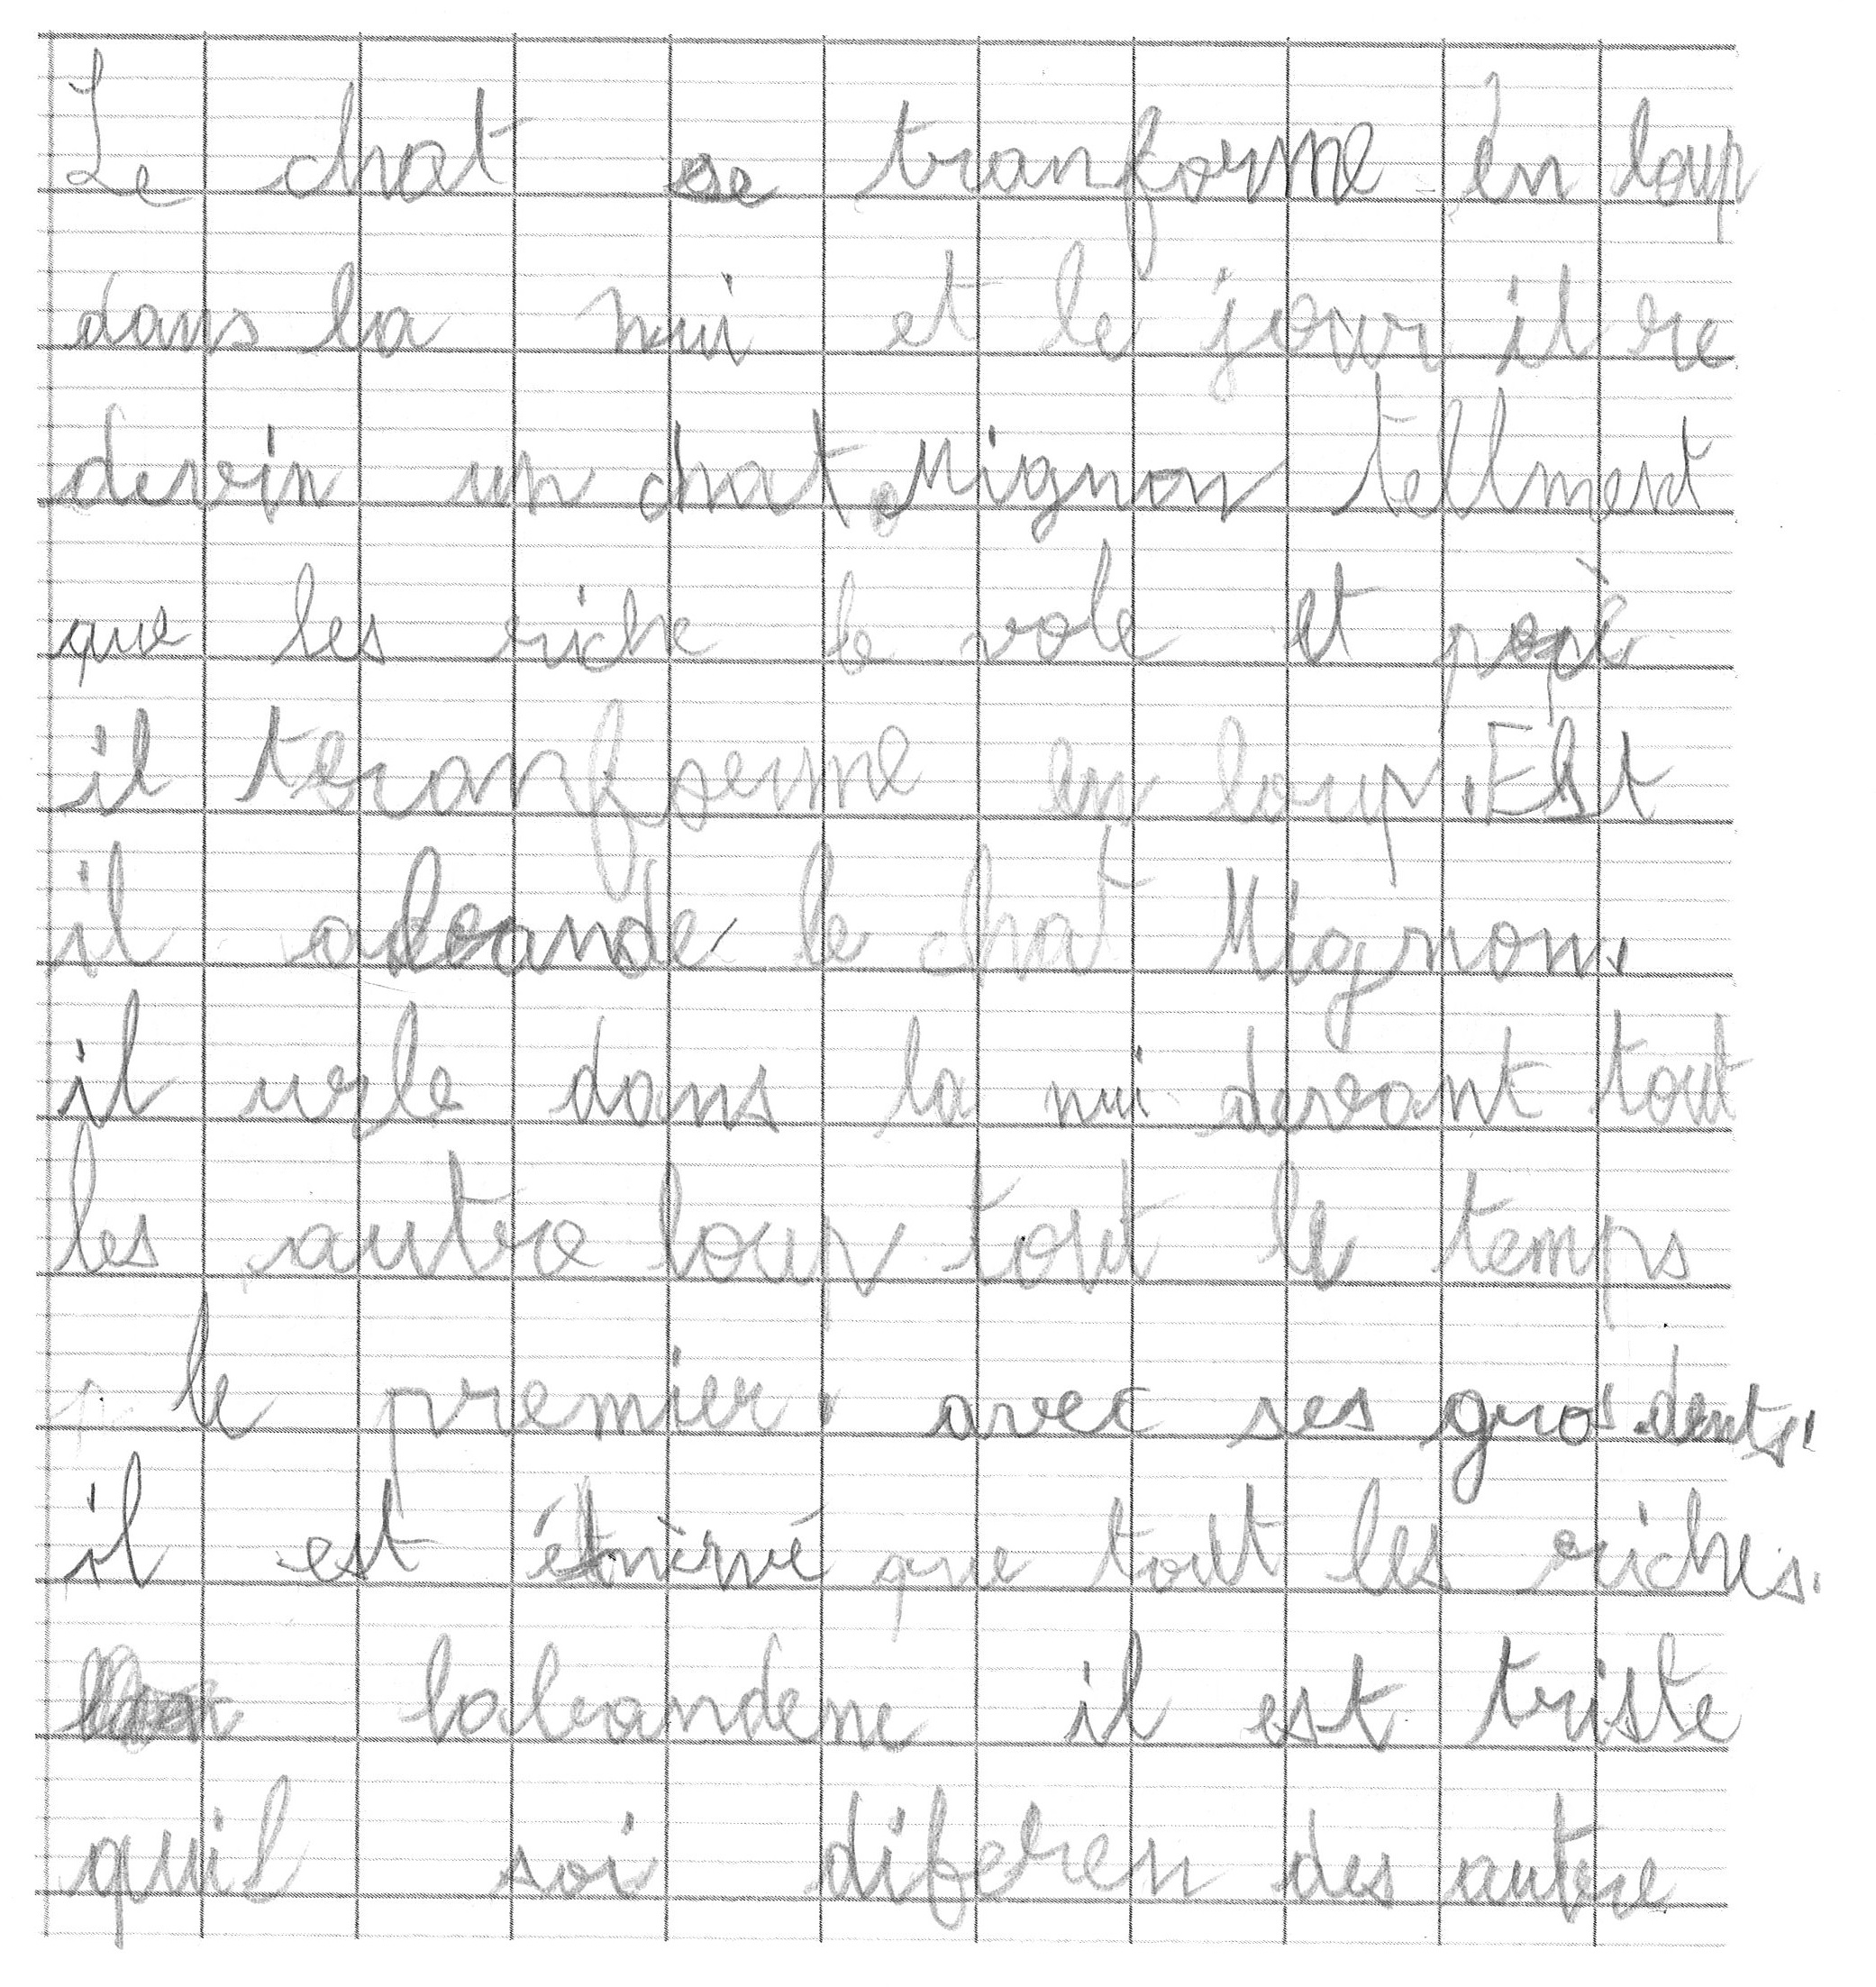 Le chat se tranforme en loup
dans la nui et le jour il re
devin un chat Mignon tellment
que les riche le vole et
il tranforme en loup. Est
il abeande le chat Mignon.
il urle dans la nui devant tout
les autre loup tout le temps
le premier. avec ses gros dents.
il est énèrvé que tout les riches.
labeandene il est triste
quil soi diferen des autre